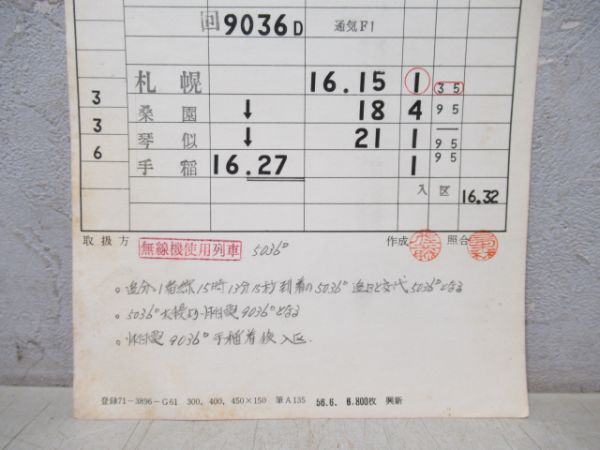 回 9036D 通気F1
札幌 16.15 1 35
3
桑園 ↓ 18 4 95
3
琴似 ↓ 21 1 95
6
手稲 16.27 1 95
入区 16.32
取扱方 無線機使用列車 5036D 作成 照合
。追分1番線15時13分15秒到着の5036D 交代5036Dとなる
。5036D 札幌より 回 9036Dとなる
。 9036D手稲着後入区.
登録71-3896-G61 300, 400, 450×150 筆A135 56.6. 6.800枚 興新